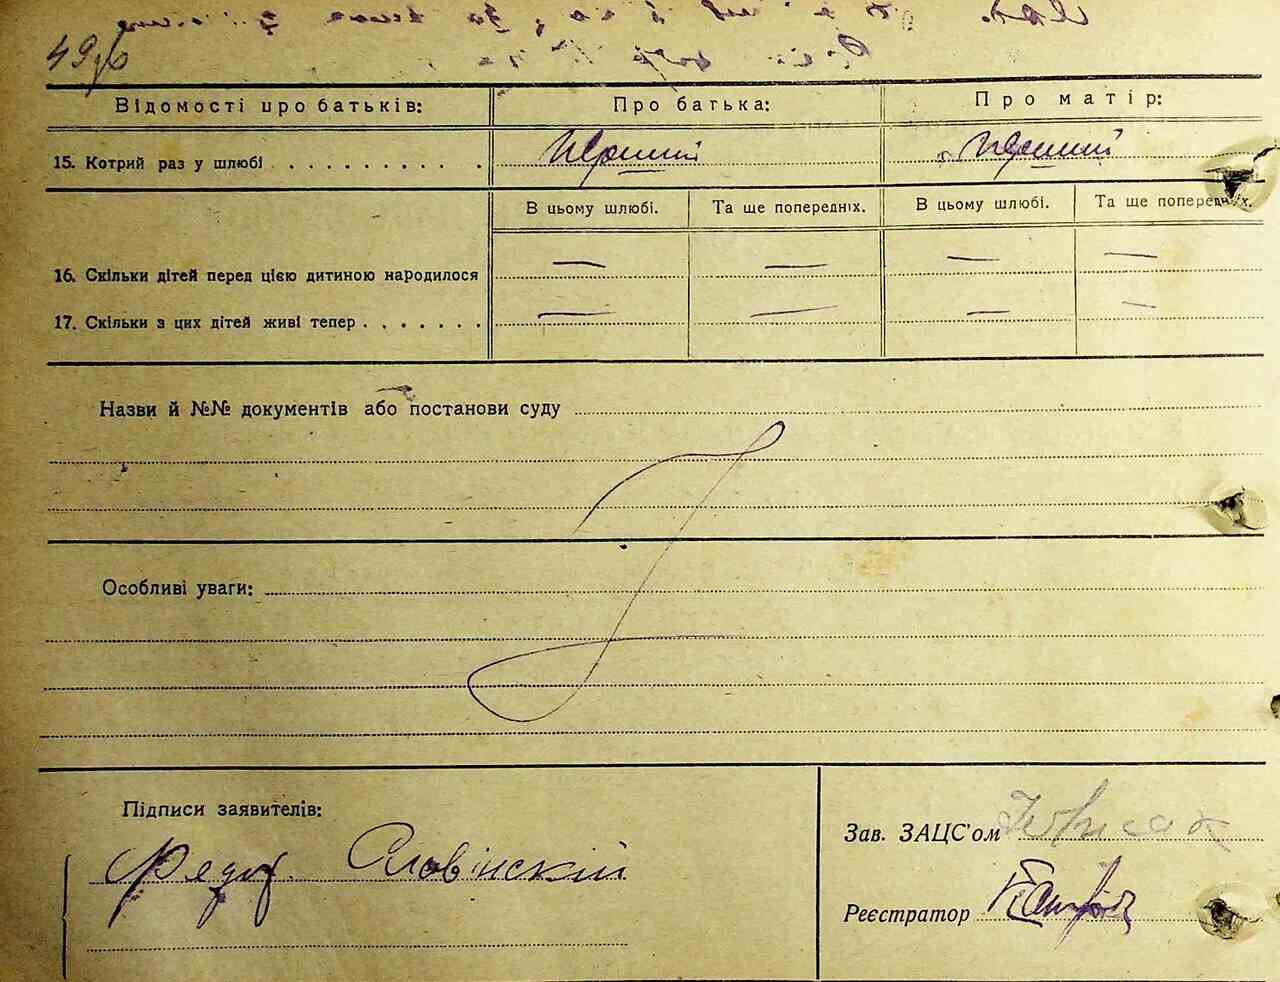 49зв
Відомості про батьків: Про батька: Про матір:
15. Котрий раз у шлюбі . . . . . . . . . . Перший Перший
В цьому шлюбі. Та ще попередніх. В цьому шлюбі. Та ще попередніх.
16. Скільки дітей перед цією дитиною народилося — — — —
17. Скільки з цих дітей живі тепер . . . . . . . — — — —
Назви й №№ документів або постанови суду
Особливі уваги:
Підписи заявителів:
Федор Словінский
Зав. ЗАЦС'ом
Реєстратор